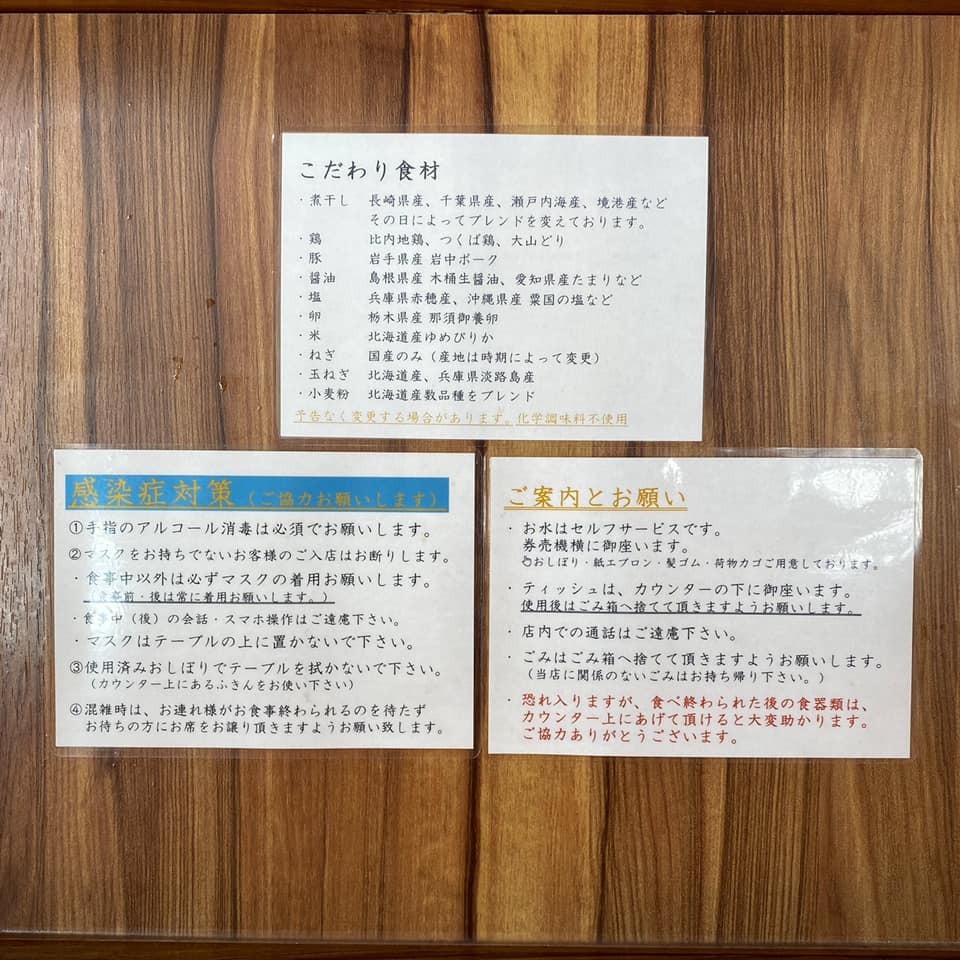 こだわり食材
・煮干し 長崎県産、千葉県産、瀬戸内海産、境港産など
その日によってブレンドを変えております。
・鶏 比内地鶏、つくば鶏、大山どり
・豚 岩手県産 岩中ポーク
・醤油 島根県産 木桶生醤油、愛知県産たまりなど
・塩 兵庫県赤穂産、沖縄県産 粟国の塩など
・卵 栃木県産 那須御養卵
・米 北海道産ゆめぴりか
・ねぎ 国産のみ（産地は時期によって変更）
・玉ねぎ 北海道産、兵庫県淡路島産
・小麦粉 北海道産数品種をブレンド
予告なく変更する場合があります。化学調味料不使用
感染症対策（ご協力お願いします）
①手指のアルコール消毒は必須でお願いします。
②マスクをお持ちでないお客様のご入店はお断りします。
・食事中以外は必ずマスクの着用お願いします。
（食事前・後は常に着用お願いします。）
・食事中（後）の会話・スマホ操作はご遠慮下さい。
・マスクはテーブルの上に置かないで下さい。
③使用済みおしぼりでテーブルを拭かないで下さい。
（カウンター上にあるふきんをお使い下さい）
④混雑時は、お連れ様がお食事終わられるのを待たず
お待ちの方にお席をお譲り頂きますようお願い致します。
ご案内とお願い
・お水はセルフサービスです。
券売機横に御座います。
おしぼり・紙エプロン・髪ゴム・荷物カゴご用意しております。
・ティッシュは、カウンターの下に御座います。
使用後はごみ箱へ捨てて頂きますようお願いします。
・店内での通話はご遠慮下さい。
・ごみはごみ箱へ捨てて頂きますようお願いします。
（当店に関係のないごみはお持ち帰り下さい。）
・恐れ入りますが、食べ終わられた後の食器類は、
カウンター上にあげて頂けると大変助かります。
ご協力ありがとうございます。